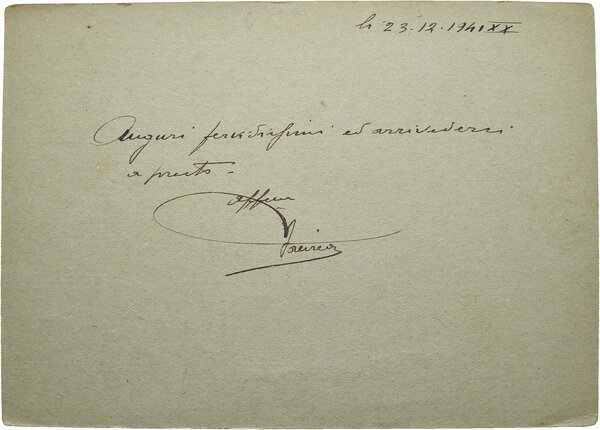 li 23.12.1941 XX
Auguri fervidissimi ed arrivederci
a presto -
Aff.mo